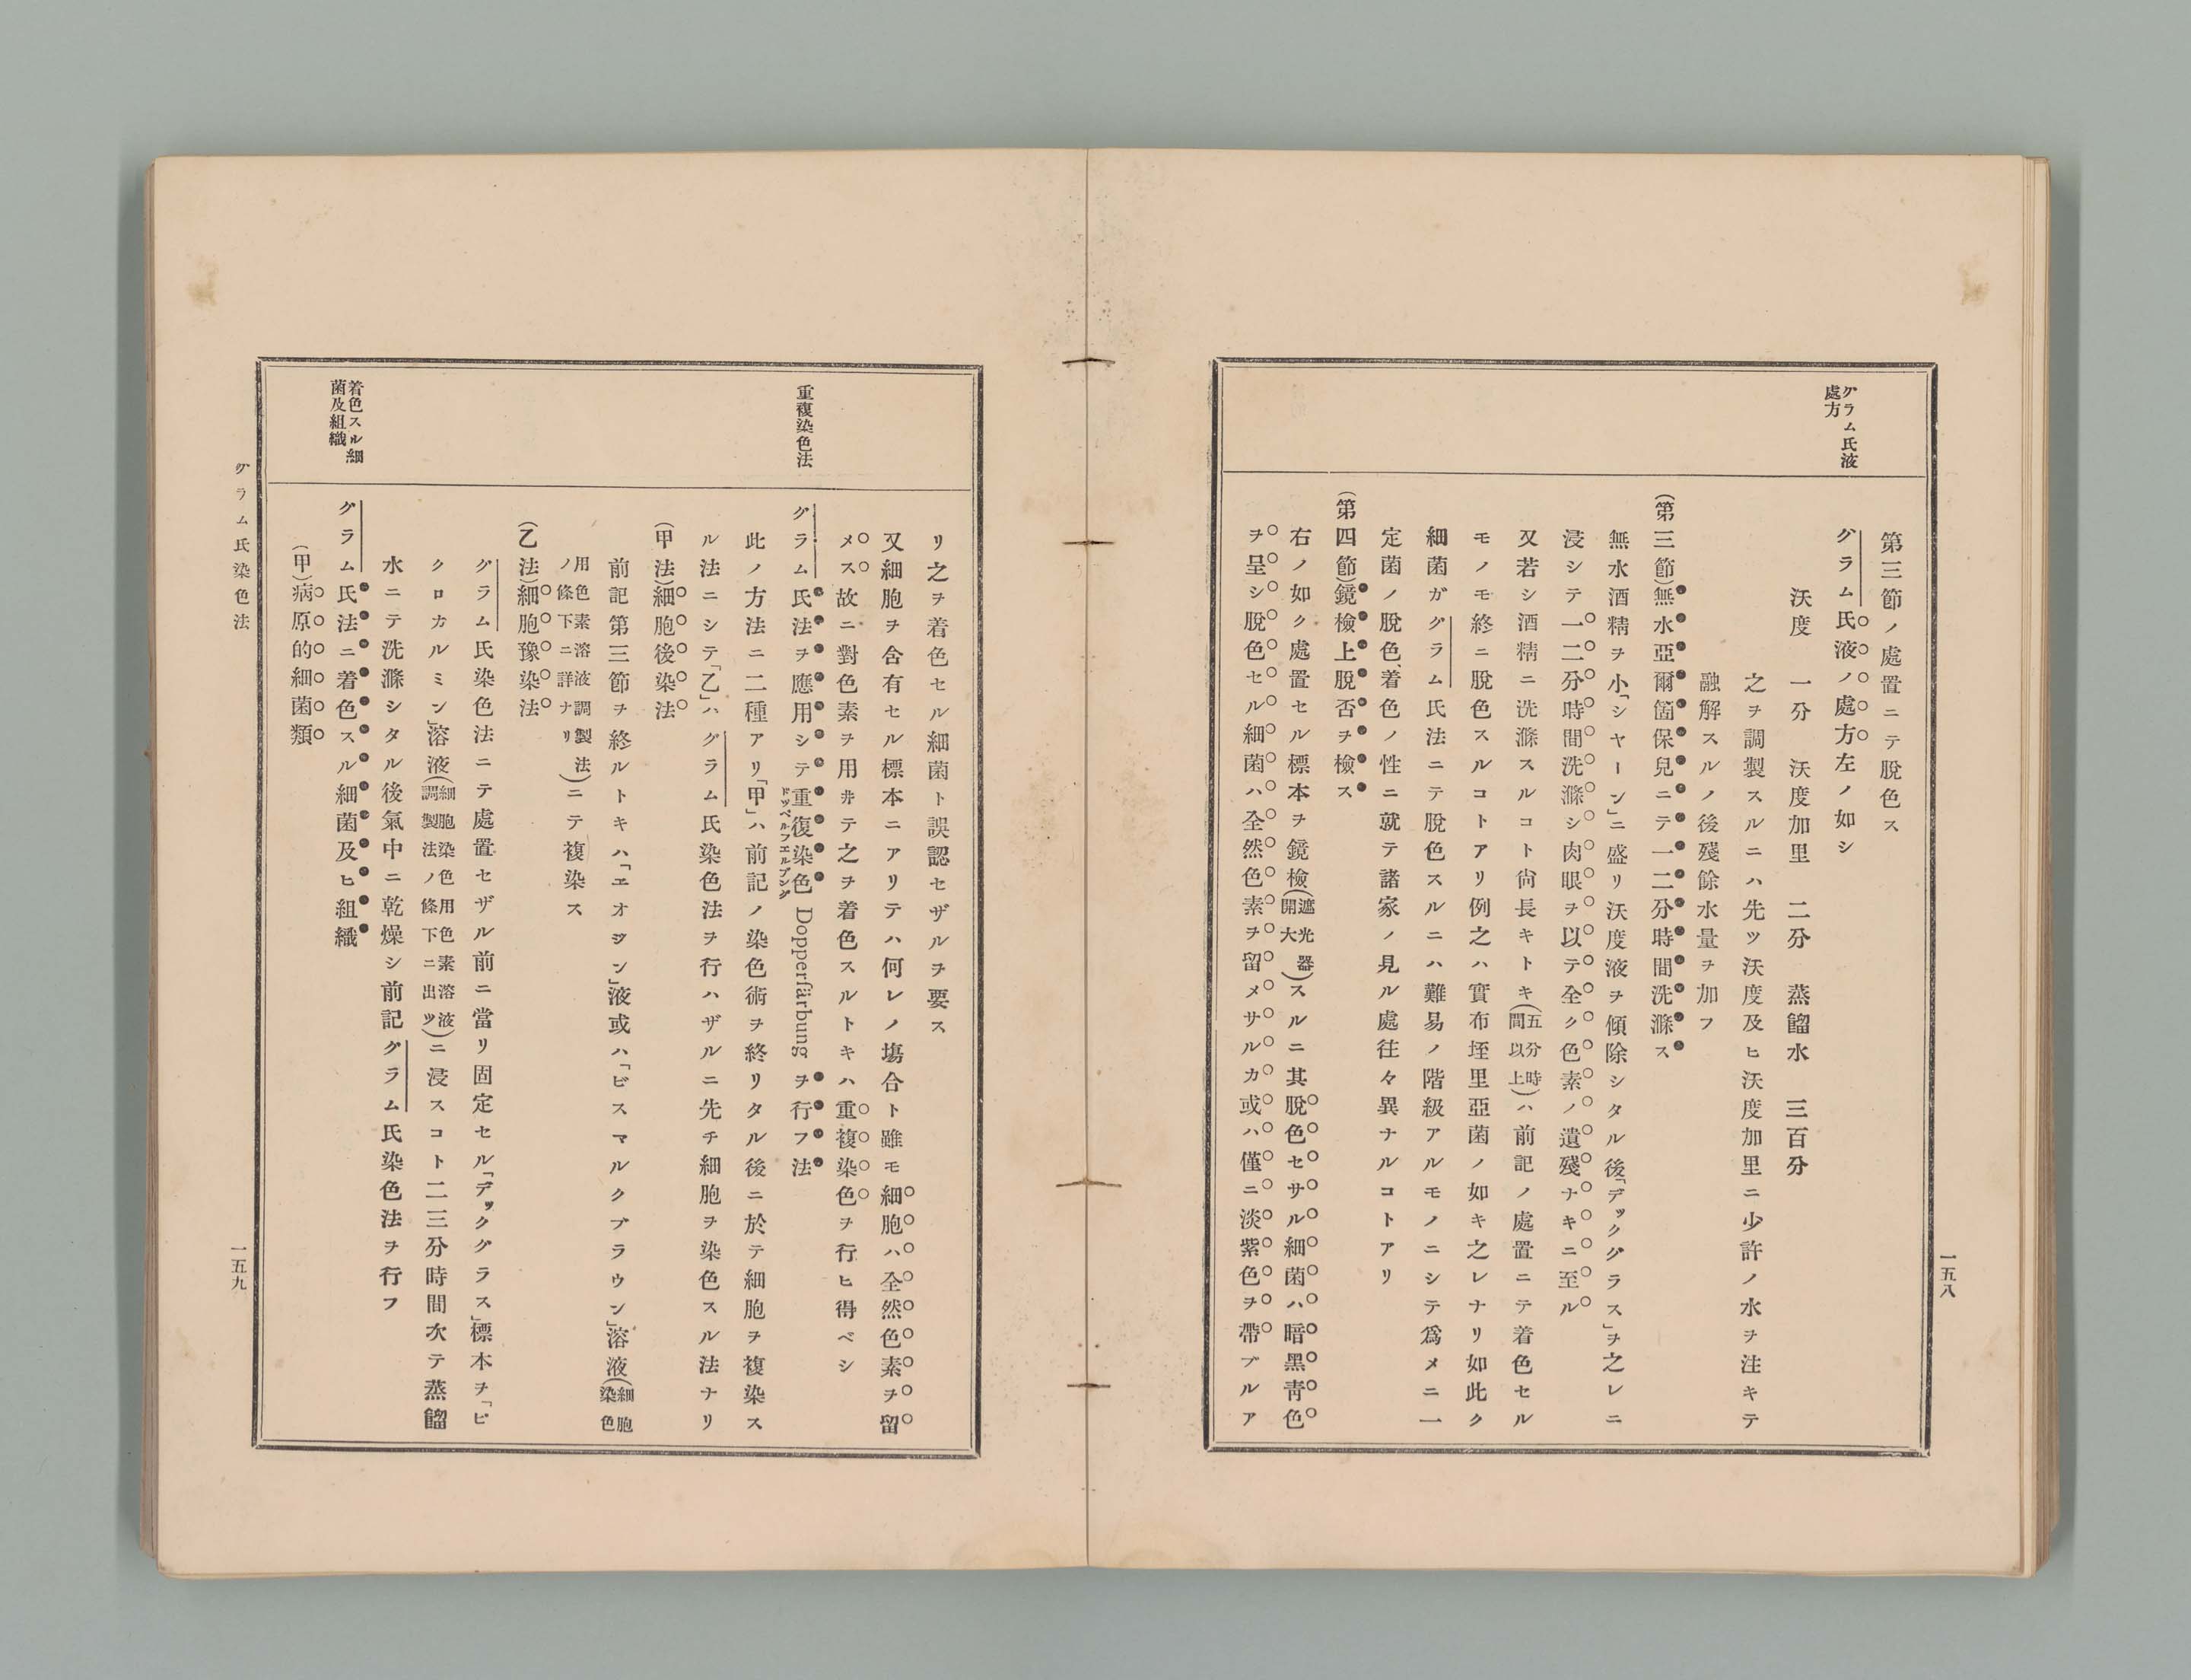 一五八
グラム氏液
處方
第三節ノ處置ニテ脫色ス
グラム氏液ノ處方左ノ如シ
沃度　一分　沃度加里　二分　蒸餾水　三百分
之ヲ調製スルニハ先ツ沃度及ヒ沃度加里ニ少許ノ水ヲ注キテ
融解スルノ後殘餘水量ヲ加フ
(第三節)無水亞爾箇保兒ニテ一二分時間洗滌ス
無水酒精ヲ小「シヤーン」ニ盛リ沃度液ヲ傾除シタル後「デックグラス」ヲ之レニ
浸シテ一二分時間洗滌シ肉眼ヲ以テ全ク色素ノ遺殘ナキニ至ル
又若シ酒精ニ洗滌スルコト尙長キトキ(五分時間以上)ハ前記ノ處置ニテ着色セル
モノモ終ニ脫色スルコトアリ例之ハ實布垤里亞菌ノ如キ之レナリ如此ク
細菌ガグラム氏法ニテ脫色スルニハ難易ノ階級アルモノニシテ爲メニ一
定菌ノ脫色、着色ノ性ニ就テ諸家ノ見ル處往々異ナルコトアリ
(第四節)鏡檢上脫否ヲ檢ス
右ノ如ク處置セル標本ヲ鏡檢(遮光器開大)スルニ其脫色セサル細菌ハ暗黑靑色
ヲ呈シ脫色セル細菌ハ全然色素ヲ留メサルカ或ハ僅ニ淡紫色ヲ帶ブルア
重複染色法
着色スル細
菌及組織
リ之ヲ着色セル細菌ト誤認セザルヲ要ス
又細胞ヲ含有セル標本ニアリテハ何レノ塲合ト雖モ細胞ハ全然色素ヲ留
メス故ニ對色素ヲ用井テ之ヲ着色スルトキハ重複染色ヲ行ヒ得ベシ
グラム氏法ヲ應用シテ重復染色 Dopperfärbung ヲ行フ法
ドッペルフエルブング
此ノ方法ニ二種アリ「甲」ハ前記ノ染色術ヲ終リタル後ニ於テ細胞ヲ複染ス
ル法ニシテ「乙」ハグラム氏染色法ヲ行ハザルニ先チ細胞ヲ染色スル法ナリ
(甲法)細胞後染法
前記第三節ヲ終ルトキハ「エオヂン」液或ハ「ビスマルクブラウン」溶液(細胞染色
用色素溶液調製法ノ條下ニ詳ナリ)ニテ複染ス
(乙法)細胞豫染法
グラム氏染色法ニテ處置セザル前ニ當リ固定セル「デックグラス」標本ヲ「ピ
クロカルミン」溶液(細胞染色用色素溶液調製法ノ條下ニ出ツ)ニ浸スコト二三分時間次テ蒸餾
水ニテ洗滌シタル後氣中ニ乾燥シ前記グラム氏染色法ヲ行フ
グラム氏法ニ着色スル細菌及ヒ組織
(甲)病原的細菌類
グラム氏染色法
一五九